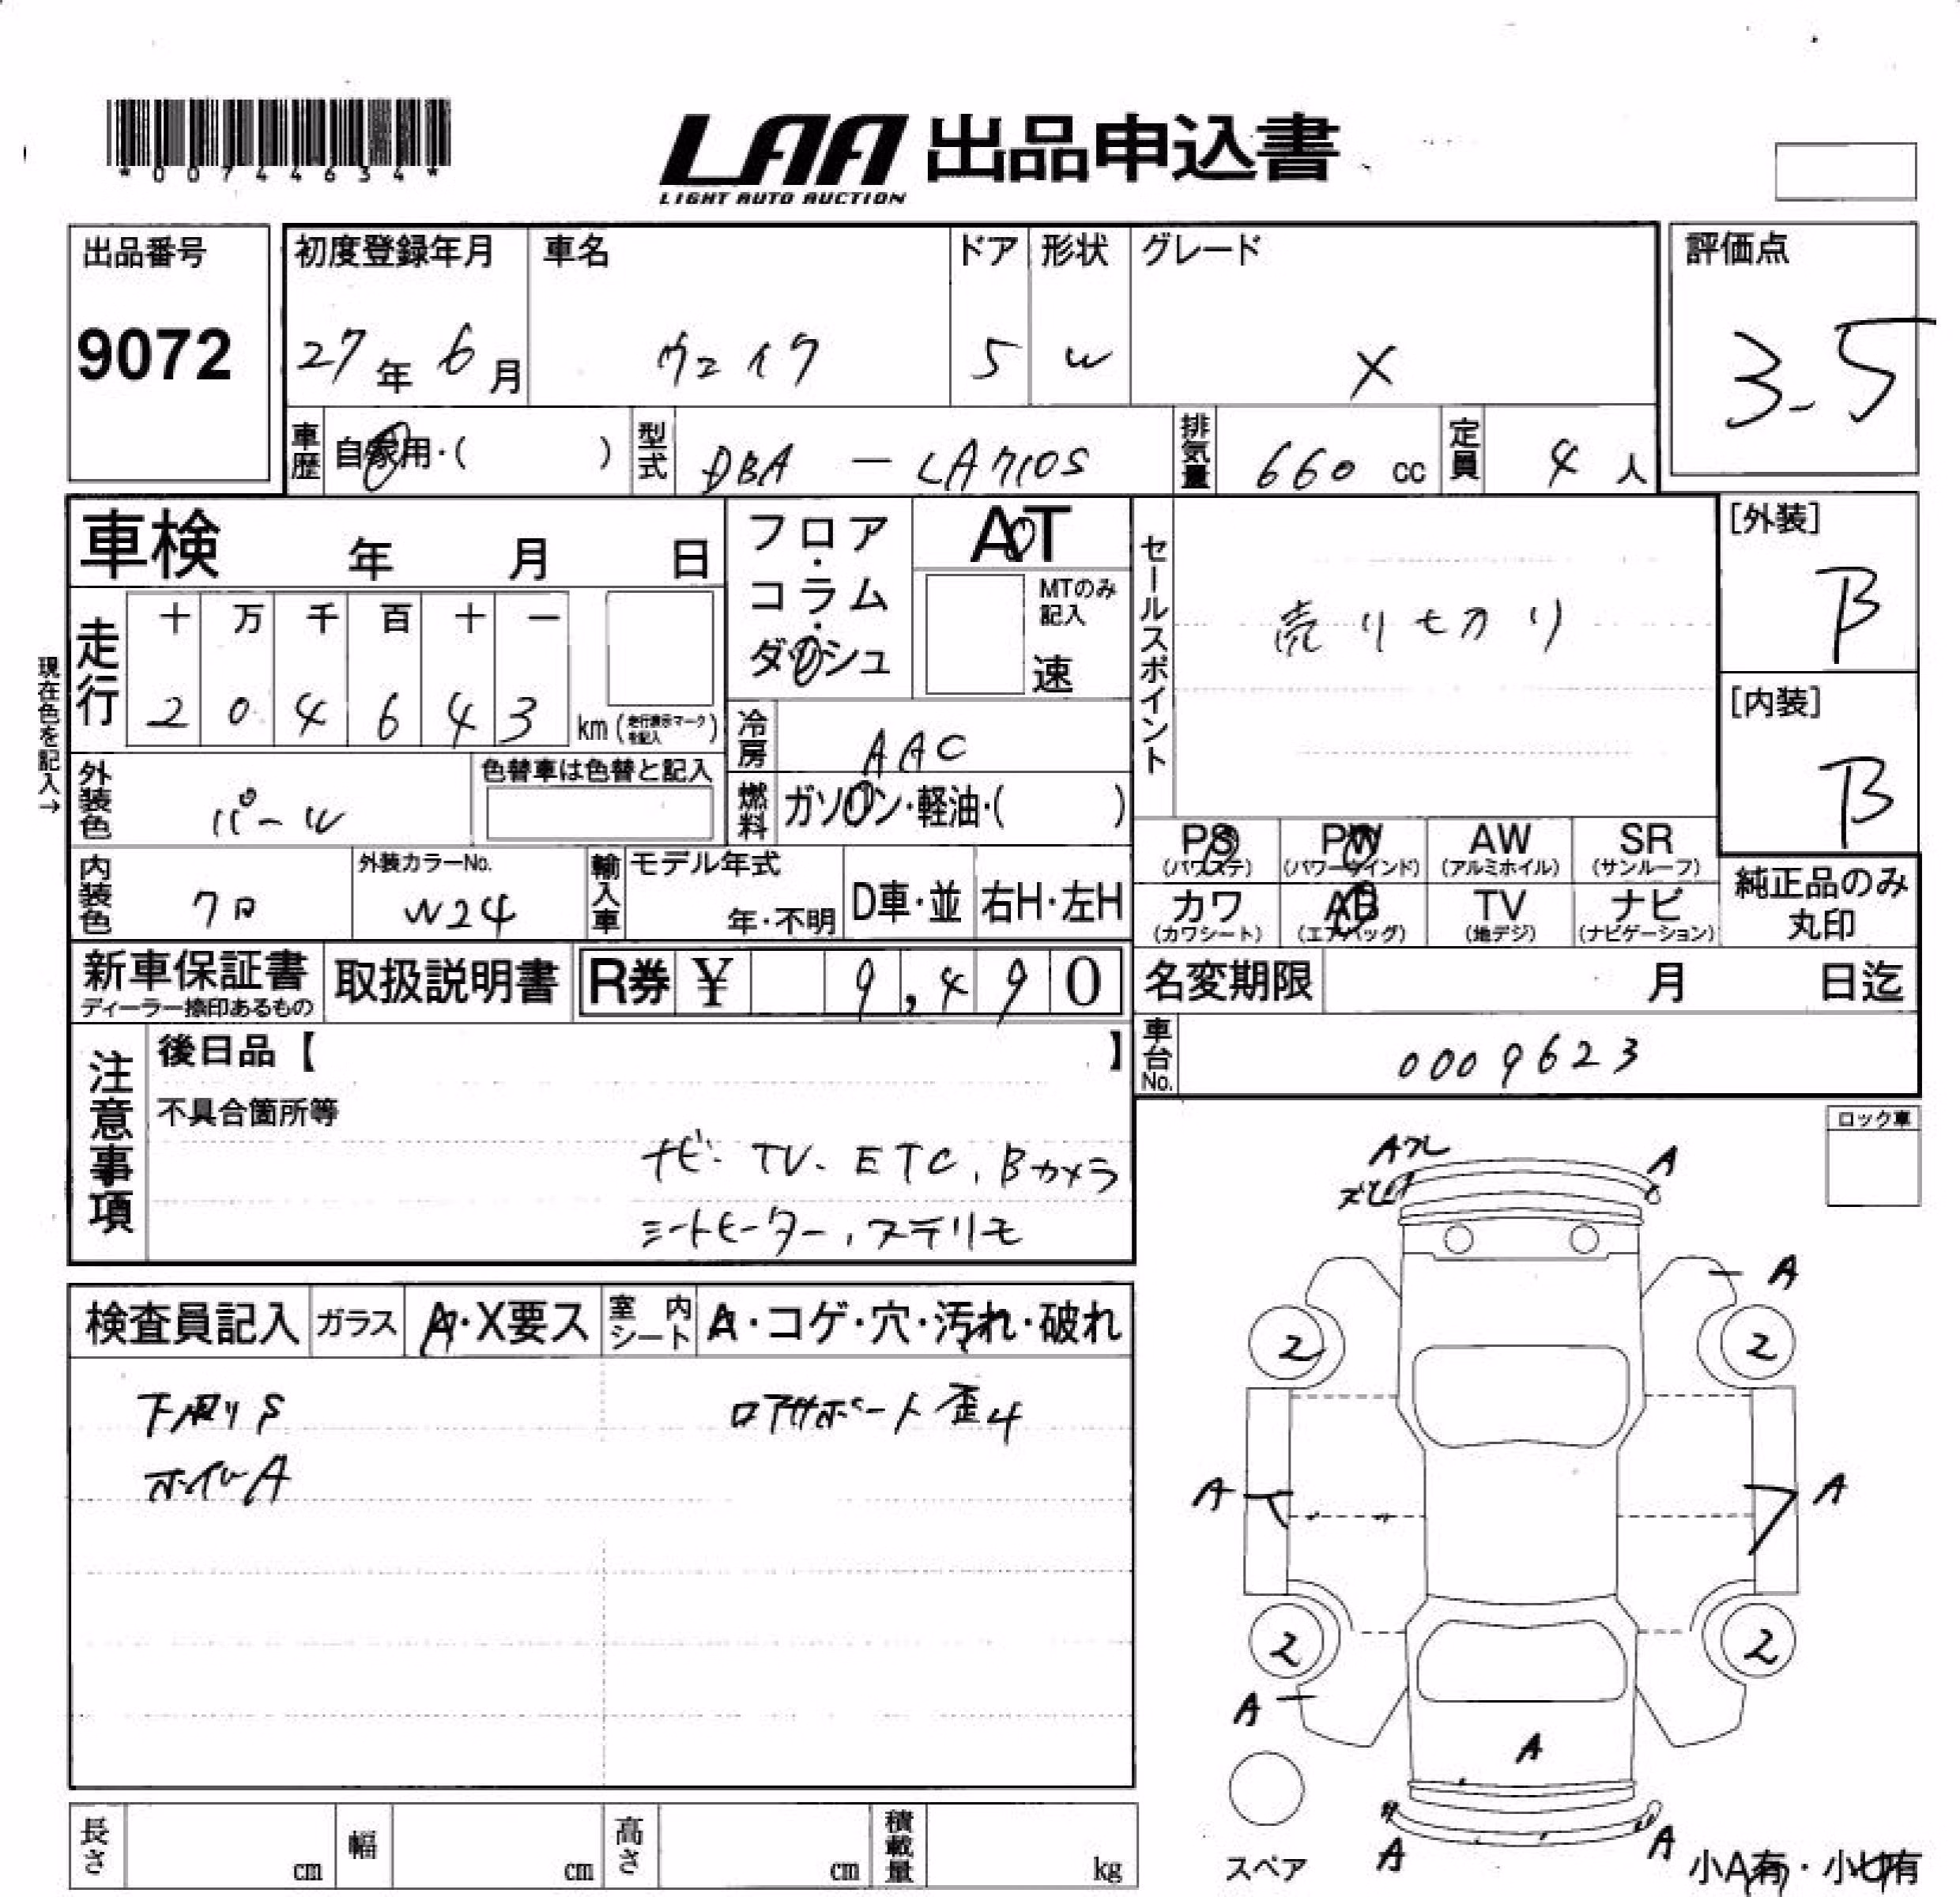 *00744634*
LAA 出品申込書
LIGHT AUTO AUCTION
出品番号
9072
初度登録年月
27年 6月
車名
ウェイク
ドア
5
形状
W
グレード
X
評価点
3.5
車歴
自家用・( )
型式
DBA - LA710S
排気量
660 cc
定員
4人
車検 年 月 日
フロア・コラム・ダッシュ
AT
MTのみ記入
速
セールスポイント
売り切り
[外装]
B
[内装]
B
現在色を記入→
走行
十 万 千 百 十 一
2 0 4 6 4 3
km (走行表示マークを記入)
冷房
AAC
外装色
パール
色替車は色替と記入
燃料
ガソリン・軽油・( )
PS
(パワステ)
PW
(パワーウインド)
AW
(アルミホイル)
SR
(サンルーフ)
カワ
(カワシート)
AB
(エアバッグ)
TV
(地デジ)
ナビ
(ナビゲーション)
純正品のみ
丸印
内装色
クロ
外装カラーNo.
W24
輸入車
モデル年式
年・不明
D車・並
右H・左H
新車保証書
ディーラー捺印あるもの
取扱説明書
R券 ¥ 9,490
名変期限 月 日迄
車台No.
0009623
注意事項
後日品【 】
不具合箇所等
ナビ、TV、ETC、Bカメラ
シートヒーター、ステリモ
ロック車
検査員記入
ガラス
A・X要ス
室内シート
A・コゲ・穴・汚れ・破れ
下廻りS
ロアサポート歪み
ホイルA
Aフレ
A
A
2
2
A
A
2
2
A
A
A
A
スペア
小A有・小U有
長さ cm
幅 cm
高さ cm
積載量 kg